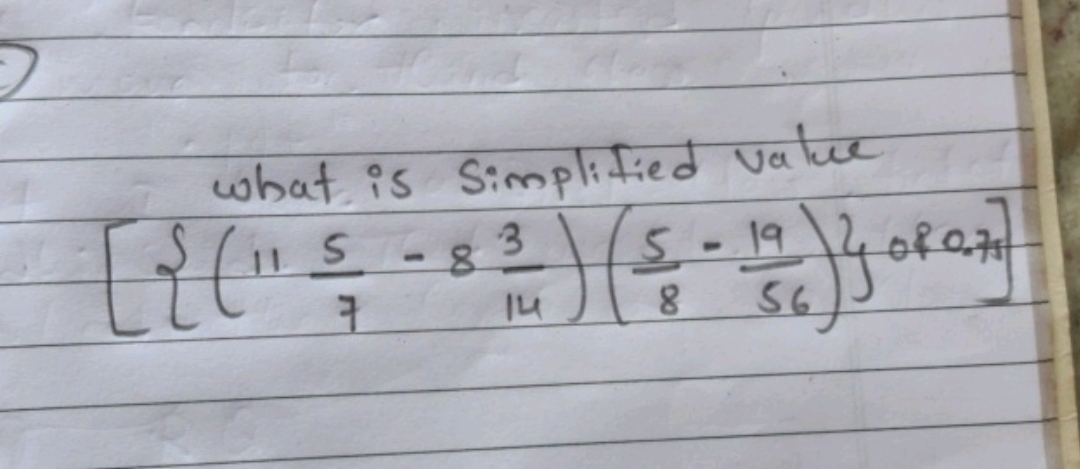 what is Simplified value
[{(11 5/7 - 8 3/14)(5/8 - 19/56)} of 0.75]